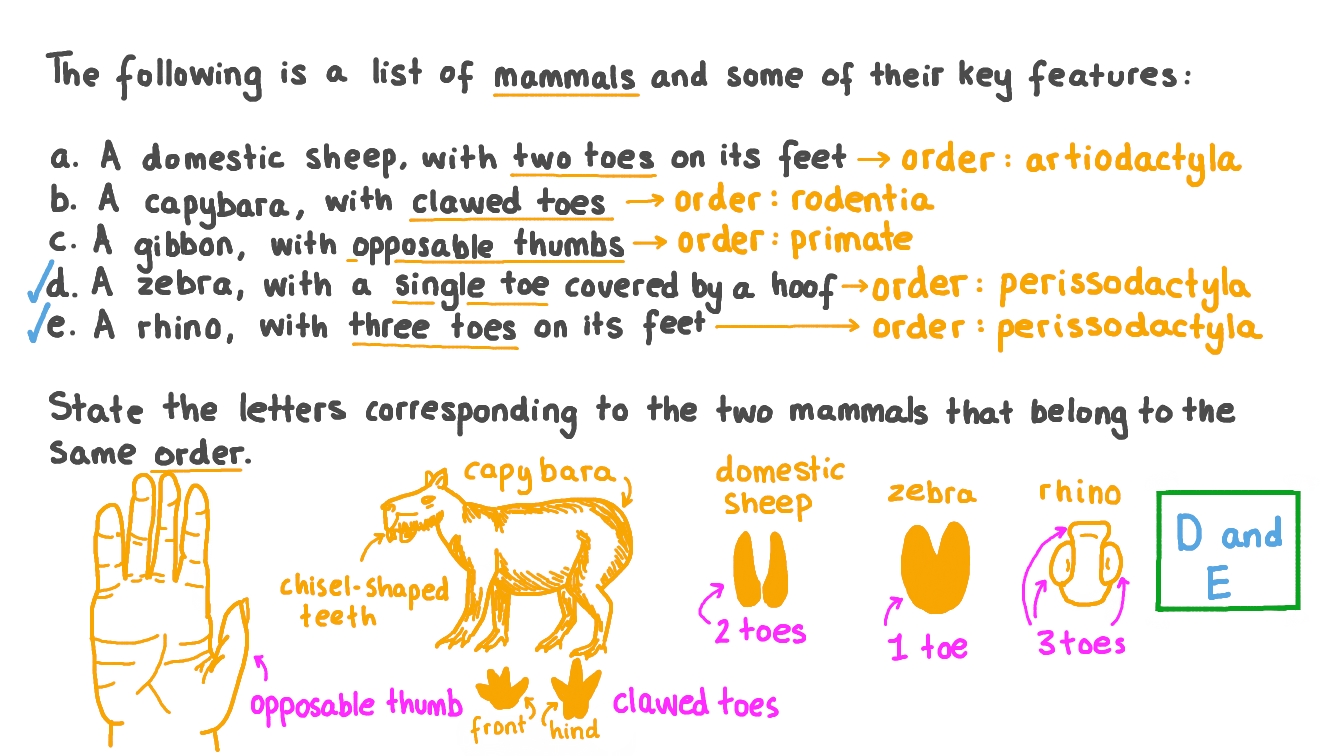 The following is a list of mammals and some of their key features:
a. A domestic sheep, with two toes on its feet → order: artiodactyla
b. A capybara, with clawed toes → order: rodentia
c. A gibbon, with opposable thumbs → order: primate
d. A zebra, with a single toe covered by a hoof → order: perissodactyla
e. A rhino, with three toes on its feet → order: perissodactyla
State the letters corresponding to the two mammals that belong to the
same order.
capybara
domestic
sheep
zebra
rhino
D and
E
chisel-shaped
teeth
2 toes
1 toe
3 toes
opposable thumb
front
hind
clawed toes